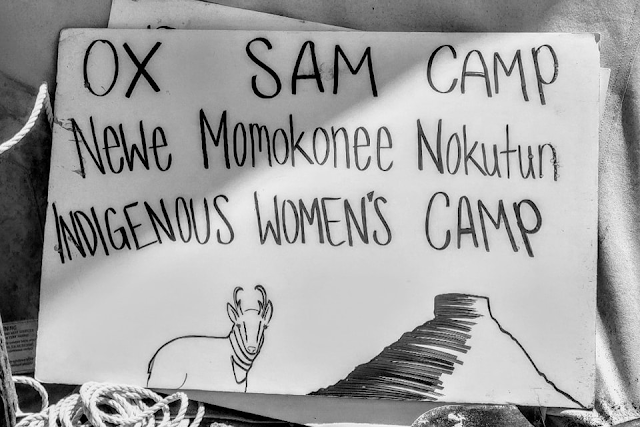 OX SAM CAMP
Newe Momokonee Nokutun
INDIGENOUS WOMEN'S CAMP